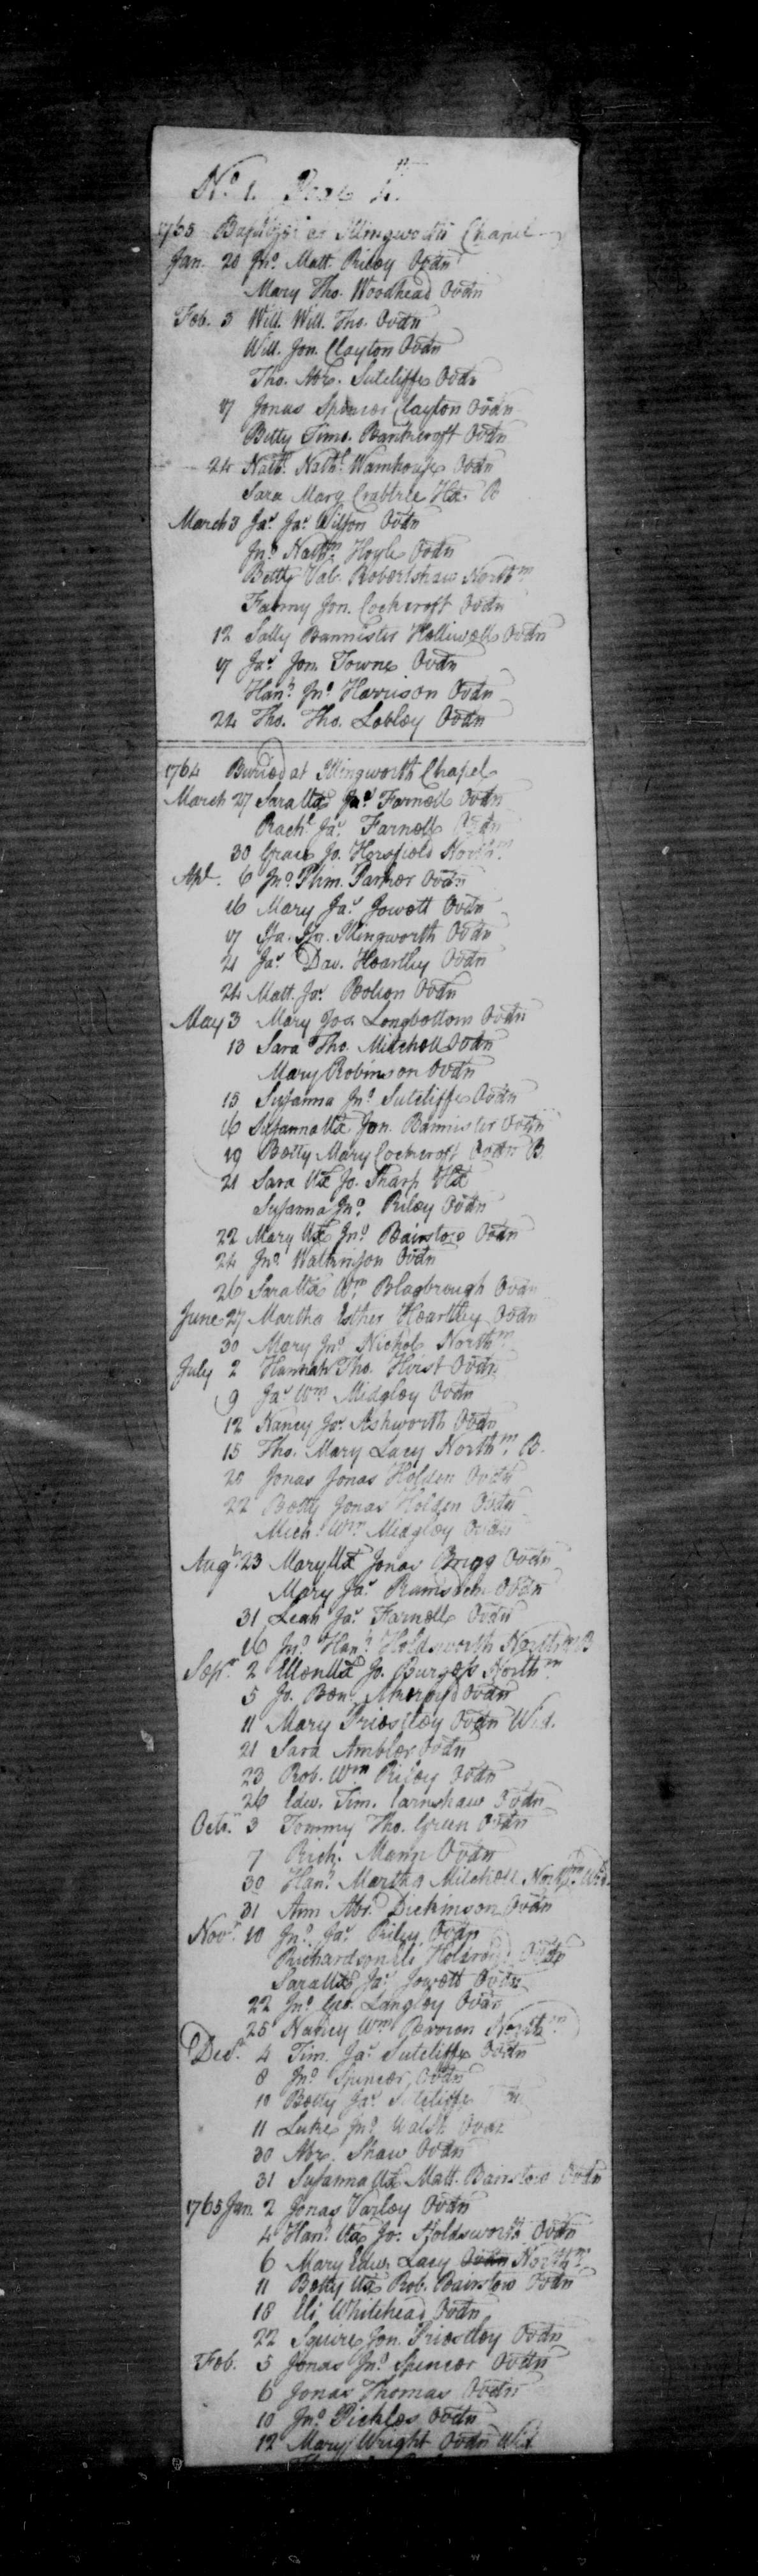 No. 1.
1765 Baptized at Illingworth Chapel
Jan. 20 Jno. Matt. Riley Ovdn
Mary Tho. Woodhead Ovdn
Feb. 3 Will. Will. Tho. Ovdn
Will. Jon. Clayton Ovdn
Tho. Abr. Sutcliffe Ovdn
17 Jonas Spencer Clayton Ovdn
Betty Timo. Bankcroft Ovdn
24 Nathl. Nathl. Wamhouse Ovdn
Sara Mary Crabtree Hx. B
March 3 Jas. Jas. Wilson Ovdn
Jno. Nathn. Hoyle Ovdn
Betty Val. Robertshaw Northm
Fanny Jon. Cockcroft Ovdn
12 Sally Bannister Holliwell Ovdn
17 Jas. Jon. Towne Ovdn
Hanh. Jno. Harrison Ovdn
24 Tho. Tho. Lobley Ovdn
1764 Buried at Illingworth Chapel
March 27 Sara Ux Jas. Farnell Ovdn
Rachl. Jas. Farnell Ovdn
30 Grace Jo. Horsfield Northm.
Apl. 6 Jno. Phin. Parker Ovdn
16 Mary Jas. Jowett Ovdn
17 Isa. Jn. Illingworth Ovdn
21 Jas. Dav. Heartley Ovdn
24 Matt. Jos. Ovdn
May 3 Mary Jos. Longbottom Ovdn
13 Sara Tho. Mitchell Ovdn
Mary Robinson Ovdn
15 Susanna Jno. Sutcliffe Ovdn
16 Susanna Ux Jon. Bannister Ovdn
19 Betty Mary Cockcroft Ovdn B
21 Sara Ux Jo. Sharp Hx
Susanna Jno. Riley Ovdn
22 Mary Ux Jno. Bairstow Ovdn
24 Jno. Watkinson Ovdn
26 Sara Ux Wm. Blagbrough Ovdn
June 27 Martha Esther Heartley Ovdn
30 Mary Jno. Nichols Northm.
July 2 Hannah Tho. Hirst Ovdn
9 Jas. Wm Midgley Ovdn
12 Nancy Jos. Ashworth Ovdn
15 Tho. Mary Lacy Northm. B.
20 Jonas Jonas Holden Ovdn
22 Betty Jonas Holden Ovdn
Mich. Wm. Midgley Ovdn
Augt. 23 Mary Ux Jonas Brigg Ovdn
Mary Jas. Ramsden Ovdn
31 Leah Jas. Farnell Ovdn
16 Jno. Hanh. Holdsworth Northm B
Sepr. 2 Ellen Ux Jo. Burgess Northm.
5 Jo. Ben. Ovdn
11 Mary Priestley Ovdn Wid.
21 Sara Ambler Ovdn
23 Rob. Wm Riley Ovdn
26 Edw. Tim. Earnshaw Ovdn
Octr. 3 Tommy Tho. Green Ovdn
7 Rich. Mann Ovdn
30 Hanh. Martha Mitchell Northm. Wid.
31 Ann Abrm. Dickinson Ovdn
Novr. 10 Jno. Jas. Riley Ovdn
Richardson Eli Holdroyd Ovdn
Sara Ux Jas. Jowett Ovdn
22 Jno. Geo. Langley Ovdn
25 Nancy Wm Northm.
Decr. 4 Tim. Jas. Sutcliffe Ovdn
8 Jno. Spencer Ovdn
10 Betty Jas. Sutcliffe
11 Luke Jno. Walsh Ovdn
30 Abr. Shaw Ovdn
31 Susanna Ux Matt. Bairstow Ovdn
1765 Jan. 2 Jonas Varley Ovdn
4 Hanh. Ux Jos. Holdsworth Ovdn
6 Mary Edw. Lacy Ovdn Northm.
11 Betty Ux Rob. Bairstow Ovdn
18 Eli Whitehead Ovdn
22 Squire Jon. Priestley Ovdn
Feb. 5 Jonas Jno. Spencer Ovdn
6 Jonas Thomas Ovdn
10 Jno. Pickles Ovdn
12 Mary Wright Ovdn Wid